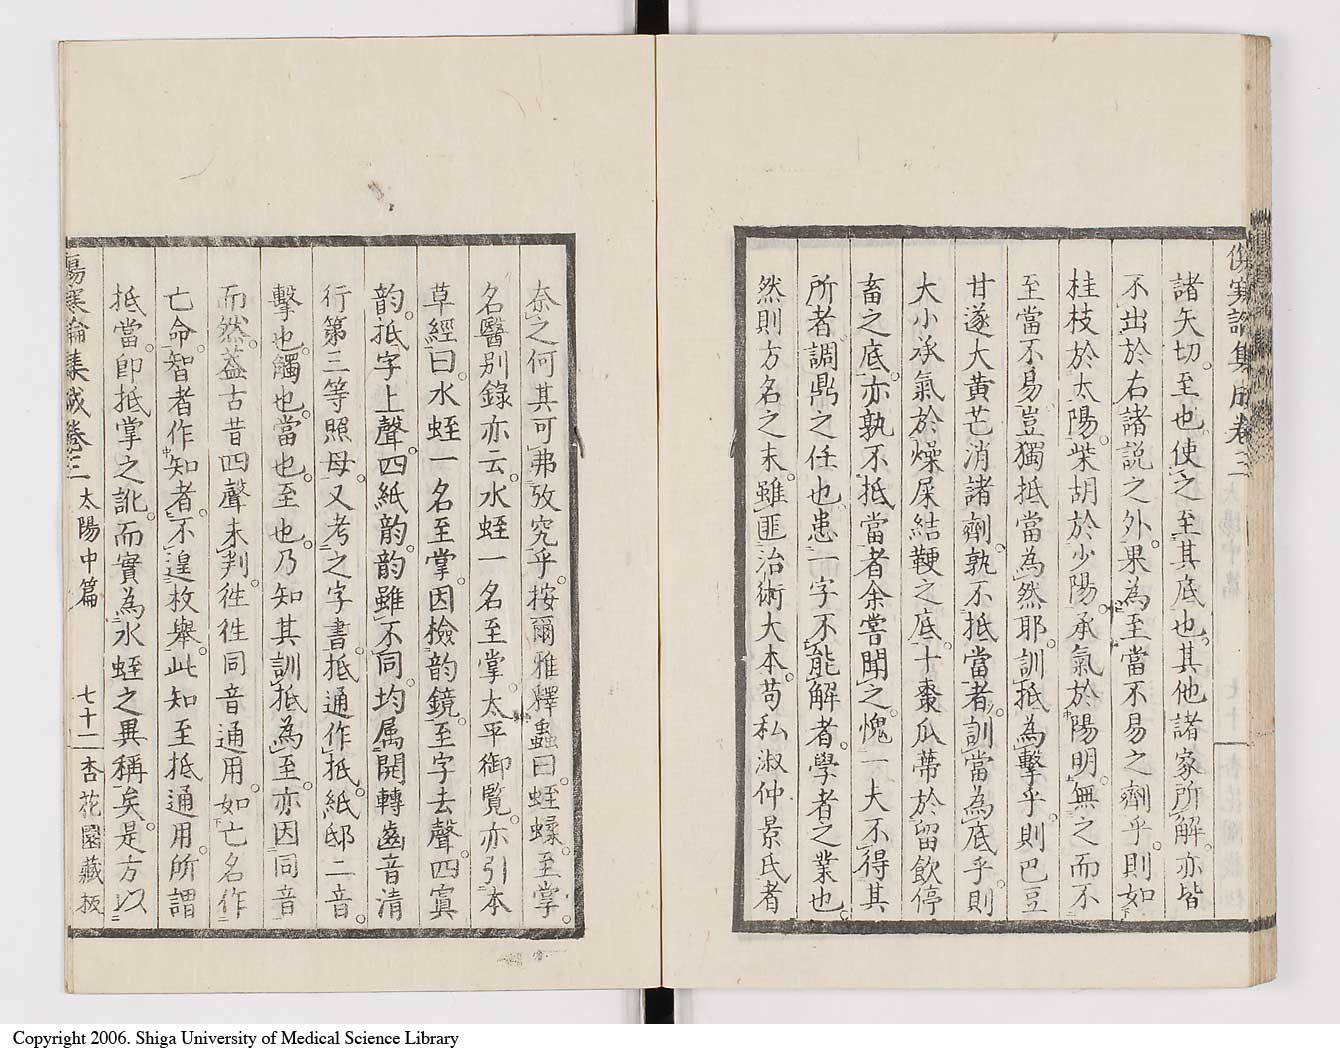 傷寒論集成卷三
諸矢切。至也。使之至其底也。其他諸家所解。亦皆
不出於右諸説之外。果為至當不易之劑乎。則如
桂枝於太陽。柴胡於少陽。承氣於陽明。無之而不
至當不易。豈獨抵當為然耶。訓抵為擊乎。則巴豆
甘遂大黄芒消諸劑。孰不抵當者。訓當為底乎。則
大小承氣於燥屎結鞕之底。十棗瓜蔕於留飲停
畜之底。亦孰不抵當者。余嘗聞之。愧一夫不得其
所者。調鼎之任也。患一字不能解者。學者之業也
然則方名之末。雖匪治術大本。苟私淑仲景氏者
奈之何其可弗攷究乎。按爾雅釋蟲曰。蛭蝚。至掌。
名醫别錄亦云。水蛭一名至掌。太平御覽。亦引本
草經曰。水蛭一名至掌。因檢韵鏡。至字去聲。四寘
韵。抵字上聲。四紙韵。韵雖不同。均属開轉齒音清
行第三等照母。又考之字書。抵通作扺。紙邸二音。
擊也。觸也。當也。至也。乃知其訓抵為至。亦因同音
而然。葢古昔四聲未判。徃徃同音通用。如亡名作
亡命。智者作知者。不遑枚舉。此知至抵通用。所謂
抵當。即抵掌之訛。而實為水蛭之異稱矣。是方以
傷寒論集成卷三 太陽中篇 七十二 杏花園藏板
Copyright 2006. Shiga University of Medical Science Library